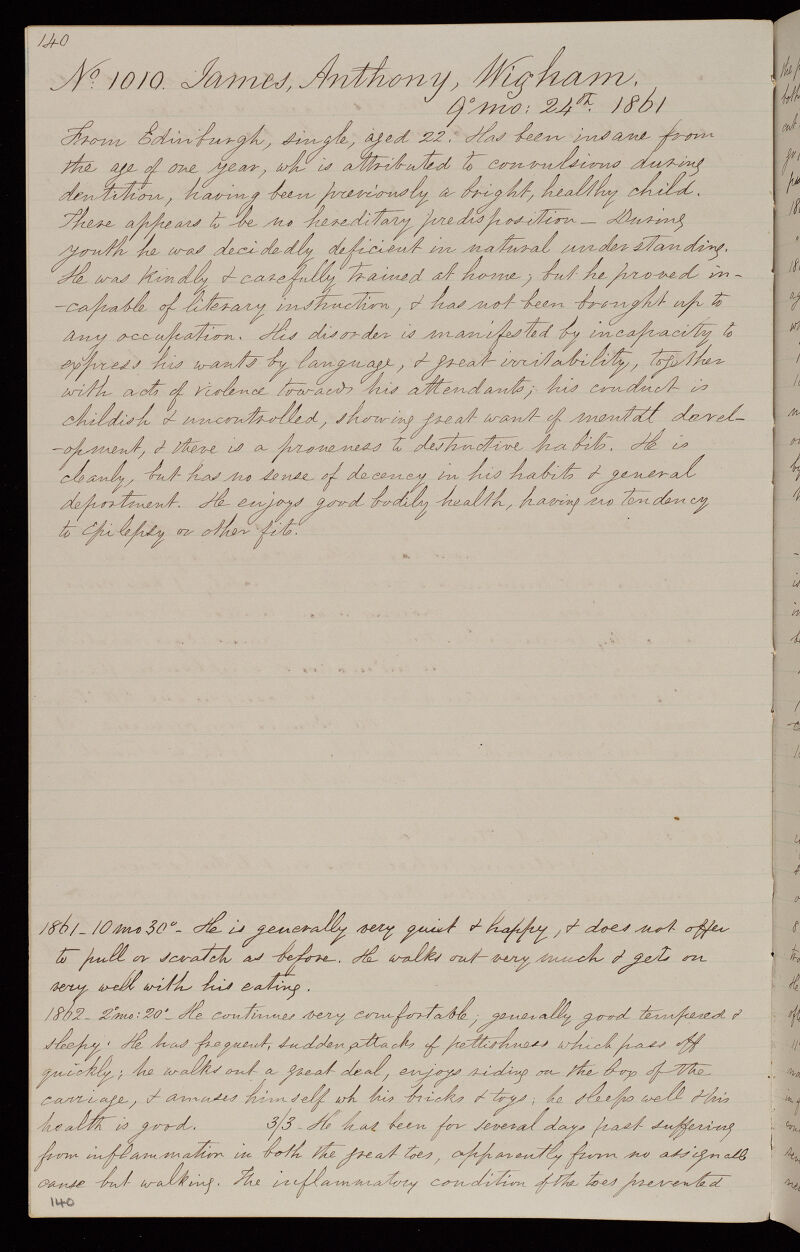 140
No. 1010. James, Anthony, Wigham.
9o mo: 24th. 1861
From Edinburgh, single, aged 22. Has been insane from
the age of one year, wh is attributed to convulsions during
dentition, having been previously a bright, healthy child.
There appears to be no hereditary predisposition – During
youth he was decidedly deficient in natural understanding.
He was kindly & carefully trained at home; but he proved in-
-capable of literary instruction, & has not been brought up to
any occupation. His disorder is manifested by incapacity to
express his wants by language, & great irritability, together
with acts of violence towards his attendants; his conduct is
childish & uncontrolled, showing great want of mental devel-
-opment, & there is a proneness to destructive habits. He is
cleanly, but has no sense of decency in his habits & general
deportment. He enjoys good bodily health, having no tendency
to Epilepsy or other fits.
1861 – 10 mo 30o – He is generally very quiet & happy, & does not offer
to pull or scratch as before. He walks out very much & gets on
very well with his eating.
1862 – 2o mo: 20o – He continues very comfortable; generally good tempered &
sleepy. He has frequent, sudden attacks of pettishness which pass off
quickly; he walks out a great deal, enjoys riding on the box of the
carriage, & amuses himself wh his bricks & toys; he sleeps well & his
health is good. 3/3 – He has been for several days past suffering
from inflammation in both the great toes, apparently from no assignable
cause but walking. The inflammatory condition of the toes prevented
140